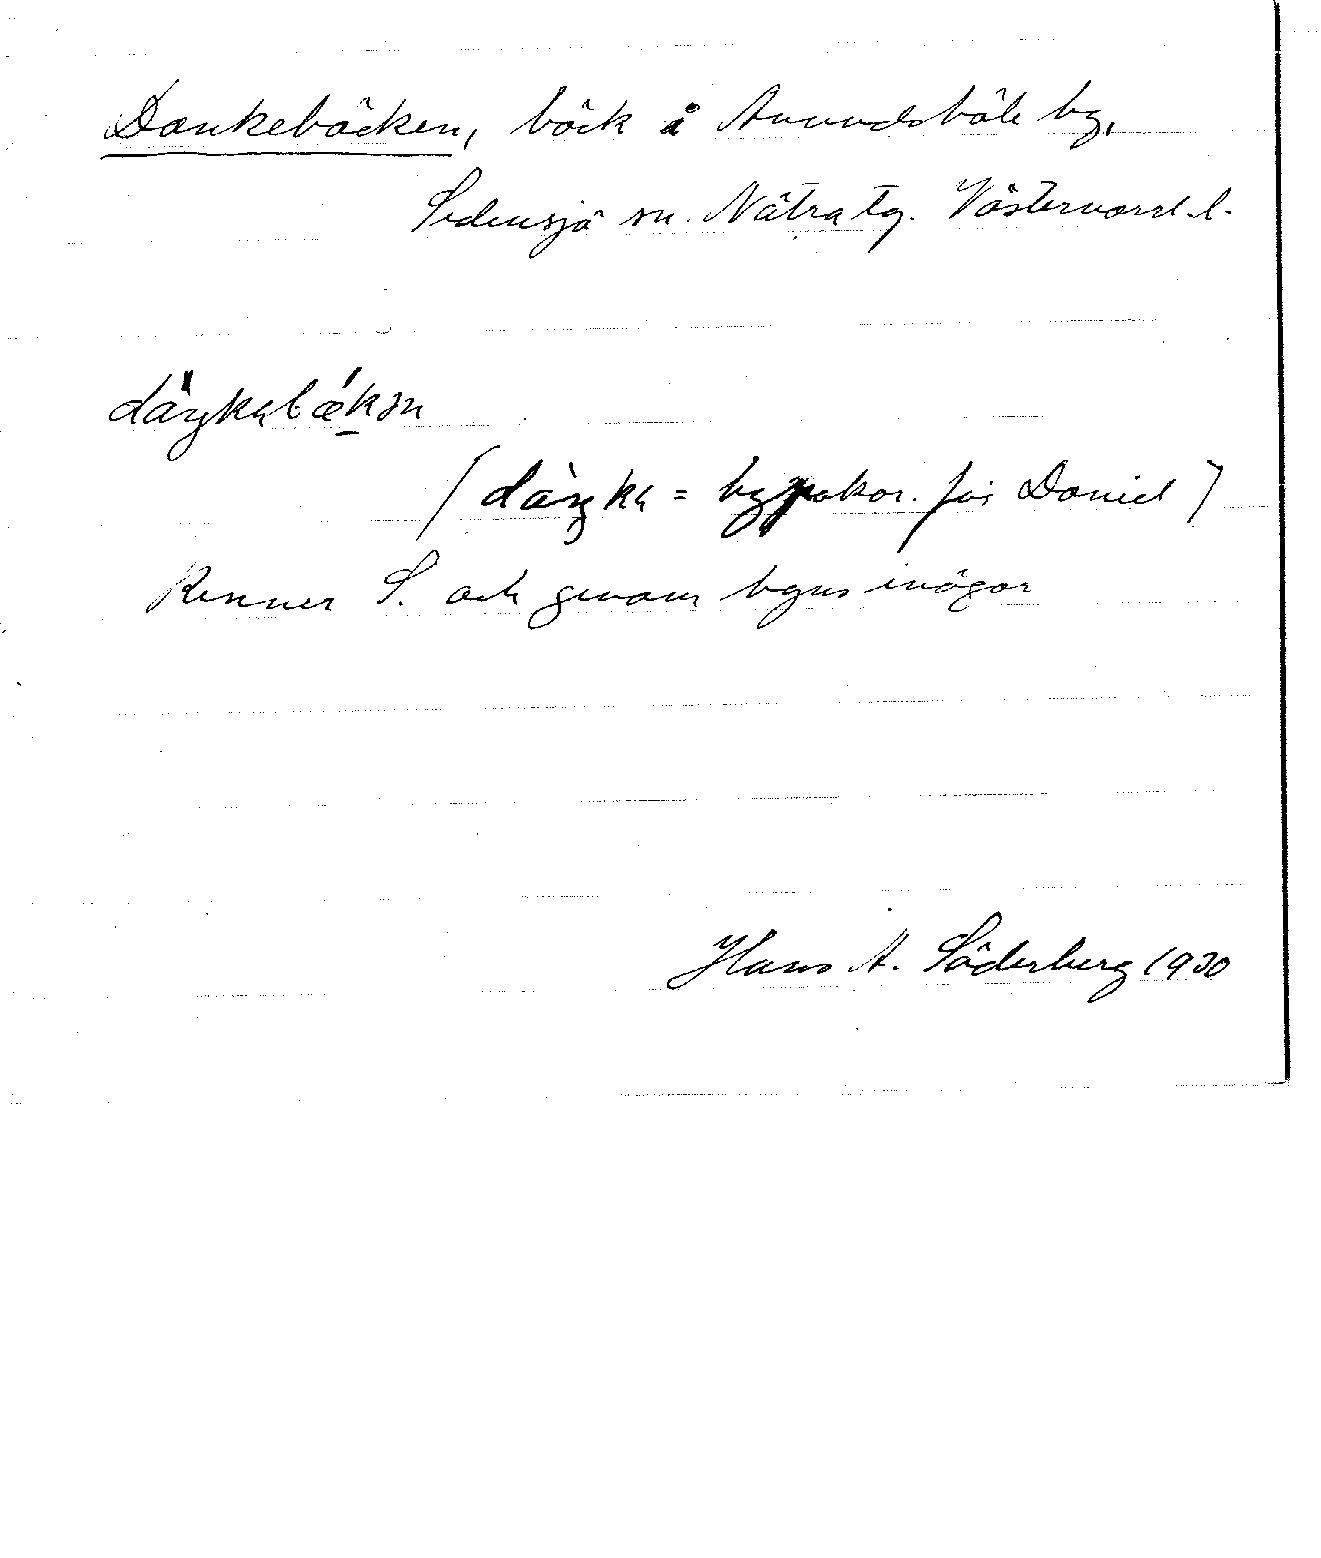 Dankebäcken, bäck å Anundsböle by,
Sidensjö sn. Nätra tg. Västernorrl. l.
dàŋkabǽkən
(dàŋka = hypokor. för Daniel)
Rinner S. och genom byns inägor
Hans A. Söderberg 1930